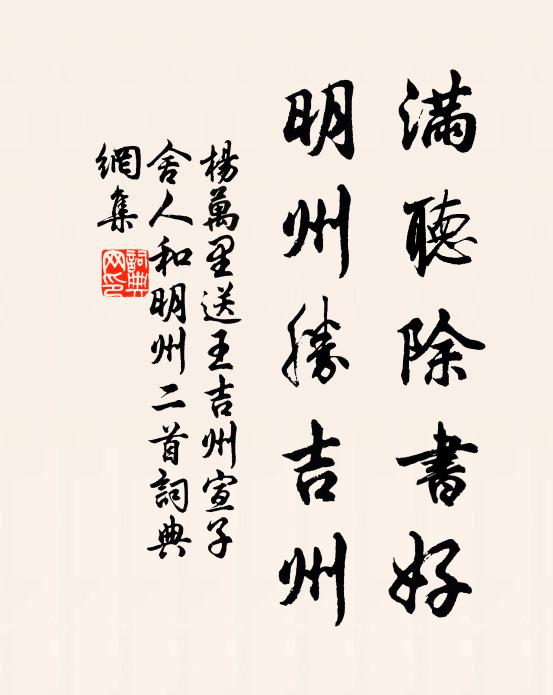 滿聽除書好
明州勝吉州
楊萬里送王吉州宣子
舍人和明州二首詞典
網集
詞典
网印